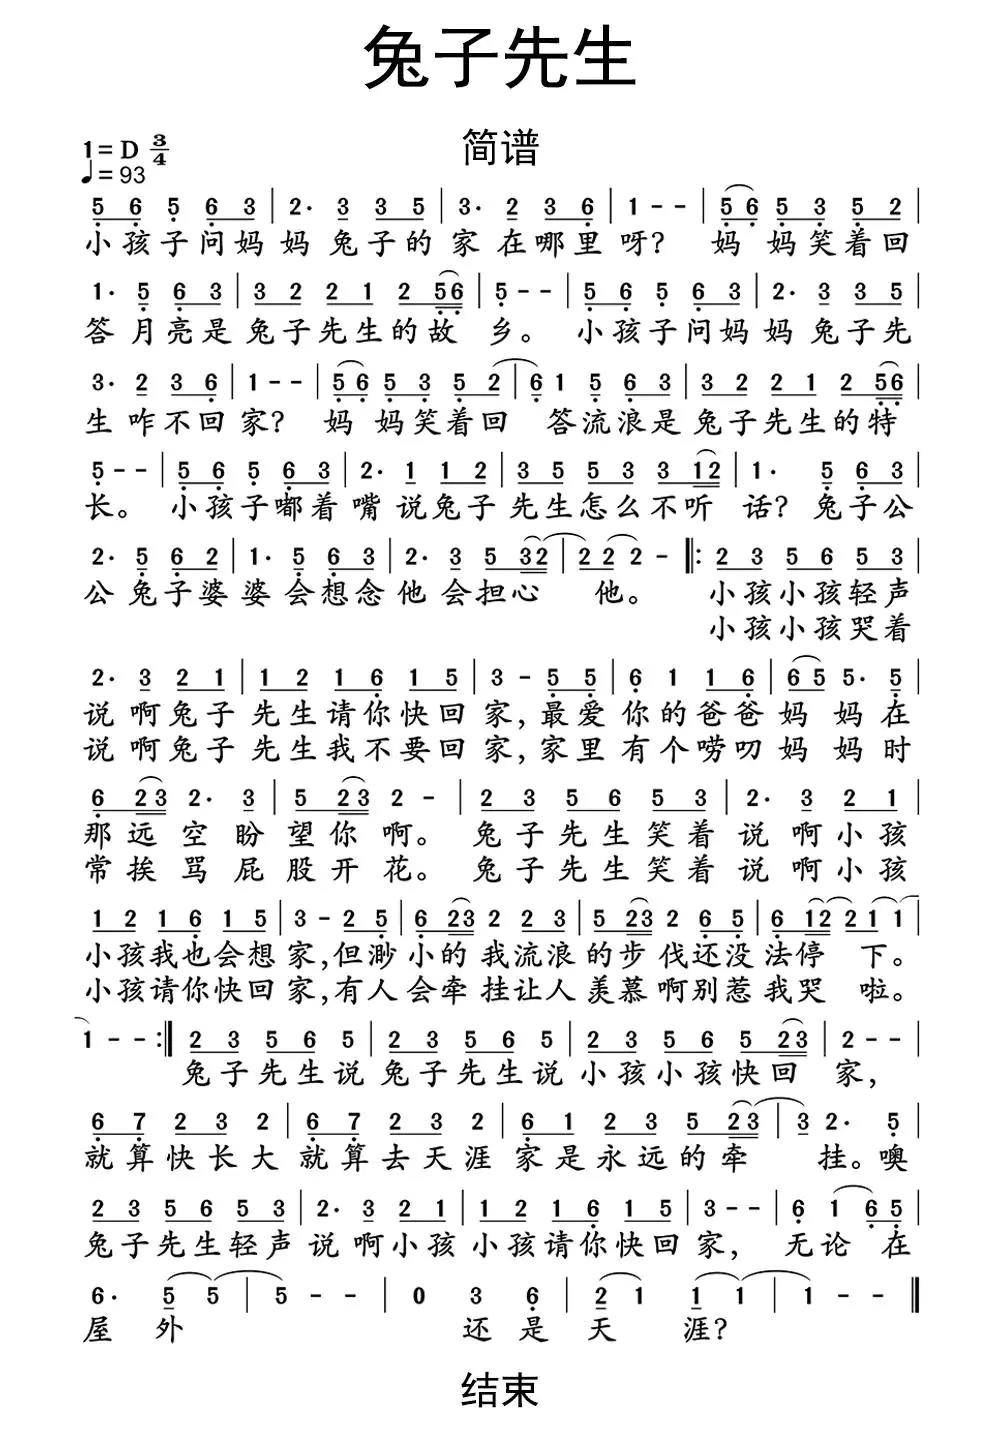 兔子先生
简谱
1=D 3/4
♩=93
5 6 5 6 3 | 2· 3 3 5 | 3· 2 3 6 | 1 - - | 5 6 5 3 5 2 |
小孩子问妈妈兔子的家在哪里呀？ 妈妈笑着回
1· 5 6 3 | 3 2 2 1 2 5 6 | 5 - - | 5 6 5 6 3 | 2· 3 3 5 |
答月亮是兔子先生的故乡。 小孩子问妈妈兔子先
3· 2 3 6 | 1 - - | 5 6 5 3 5 2 | 6 1 5 6 3 | 3 2 2 1 2 5 6 |
生咋不回家？ 妈妈笑着回 答流浪是兔子先生的特
5 - - | 5 6 5 6 3 | 2· 1 1 2 | 3 5 5 3 3 1 2 | 1· 5 6 3 |
长。 小孩子嘟着嘴说兔子先生怎么不听 话？ 兔子公
2· 5 6 2 | 1· 5 6 3 | 2· 3 5 3 2 | 2 2 2 - ‖: 2 3 5 6 5 3 |
公兔子婆婆会想念他会担心 他。 小孩小孩轻声
小孩小孩哭着
2· 3 2 1 | 1 2 1 6 1 5 | 3 - 5 5 | 6 1 1 6 | 6 5 5· 5 |
说啊兔子先生请你快回家,最爱你的爸爸妈妈在
说啊兔子先生我不要回家,家里有个唠叨妈妈时
6 2 3 2· 3 | 5 2 3 2 - | 2 3 5 6 5 3 | 2· 3 2 1 |
那远空盼望你啊。 兔子先生笑着说啊小孩
常挨骂屁股开花。 兔子先生笑着说啊小孩
1 2 1 6 1 5 | 3 - 2 5 | 6 2 3 2 2 3 | 5 2 3 2 6 5 | 6 1 2 2 1 1 |
小孩我也会想家,但渺小的我流浪的步伐还没法停 下。
小孩请你快回家,有人会牵挂让人羡慕啊别惹我哭 啦。
1 - - :‖ 2 3 5 6 5 | 2 3 5 6 5 | 2 3 5 6 5 2 3 | 2 - - |
兔子先生说兔子先生说小孩小孩快回 家，
6 7 2 3 2 | 6 7 2 3 2 | 6 1 2 3 5 2 3 | 3 2· 5 |
就算快长大就算去天涯家是永远的牵 挂。噢
2 3 5 6 5 3 | 2· 3 2 1 | 1 2 1 6 1 5 | 3 - - | 6 1 6 5 |
兔子先生轻声说啊小孩小孩请你快回家， 无论在
6· 5 5 | 5 - - | 0 3 6 | 2 1 1 1 | 1 - - ‖
屋外 还是天涯？
结束